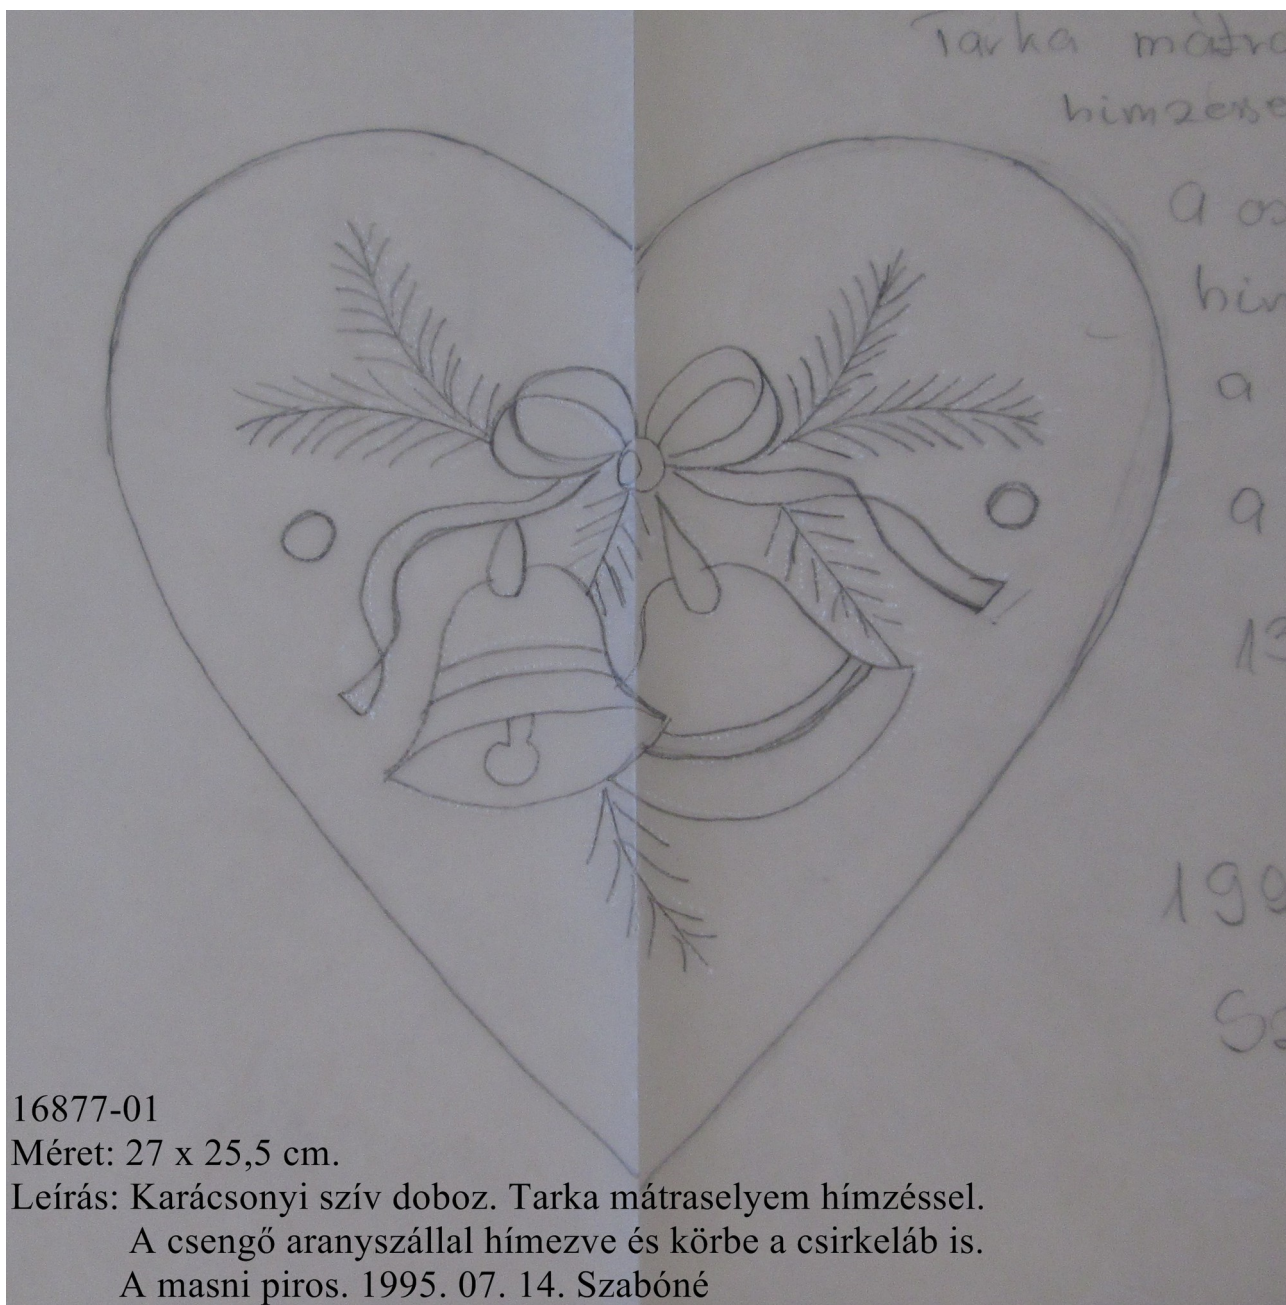 Tarka
A
a
a
13
199
16877-01
Méret: 27 x 25,5 cm.
Leírás: Karácsonyi szív doboz. Tarka mátraselyem hímzéssel.
A csengő aranyszállal hímezve és körbe a csirkeláb is.
A masni piros. 1995. 07. 14. Szabóné